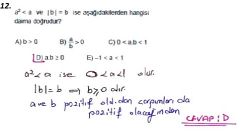 12.
a² < a ve |b| = b ise aşağıdakilerden hangisi
daima doğrudur?
A) b > 0 B) a/b > 0 C) 0 < a.b < 1
D) a.b ≥ 0 E) -1 < a < 1
a² < a ise 0 < a < 1 olur.
|b| = b ⟹ b ≥ 0 dır.
a ve b pozitif olduğundan çarpımları da
pozitif olacağından
CEVAP: D